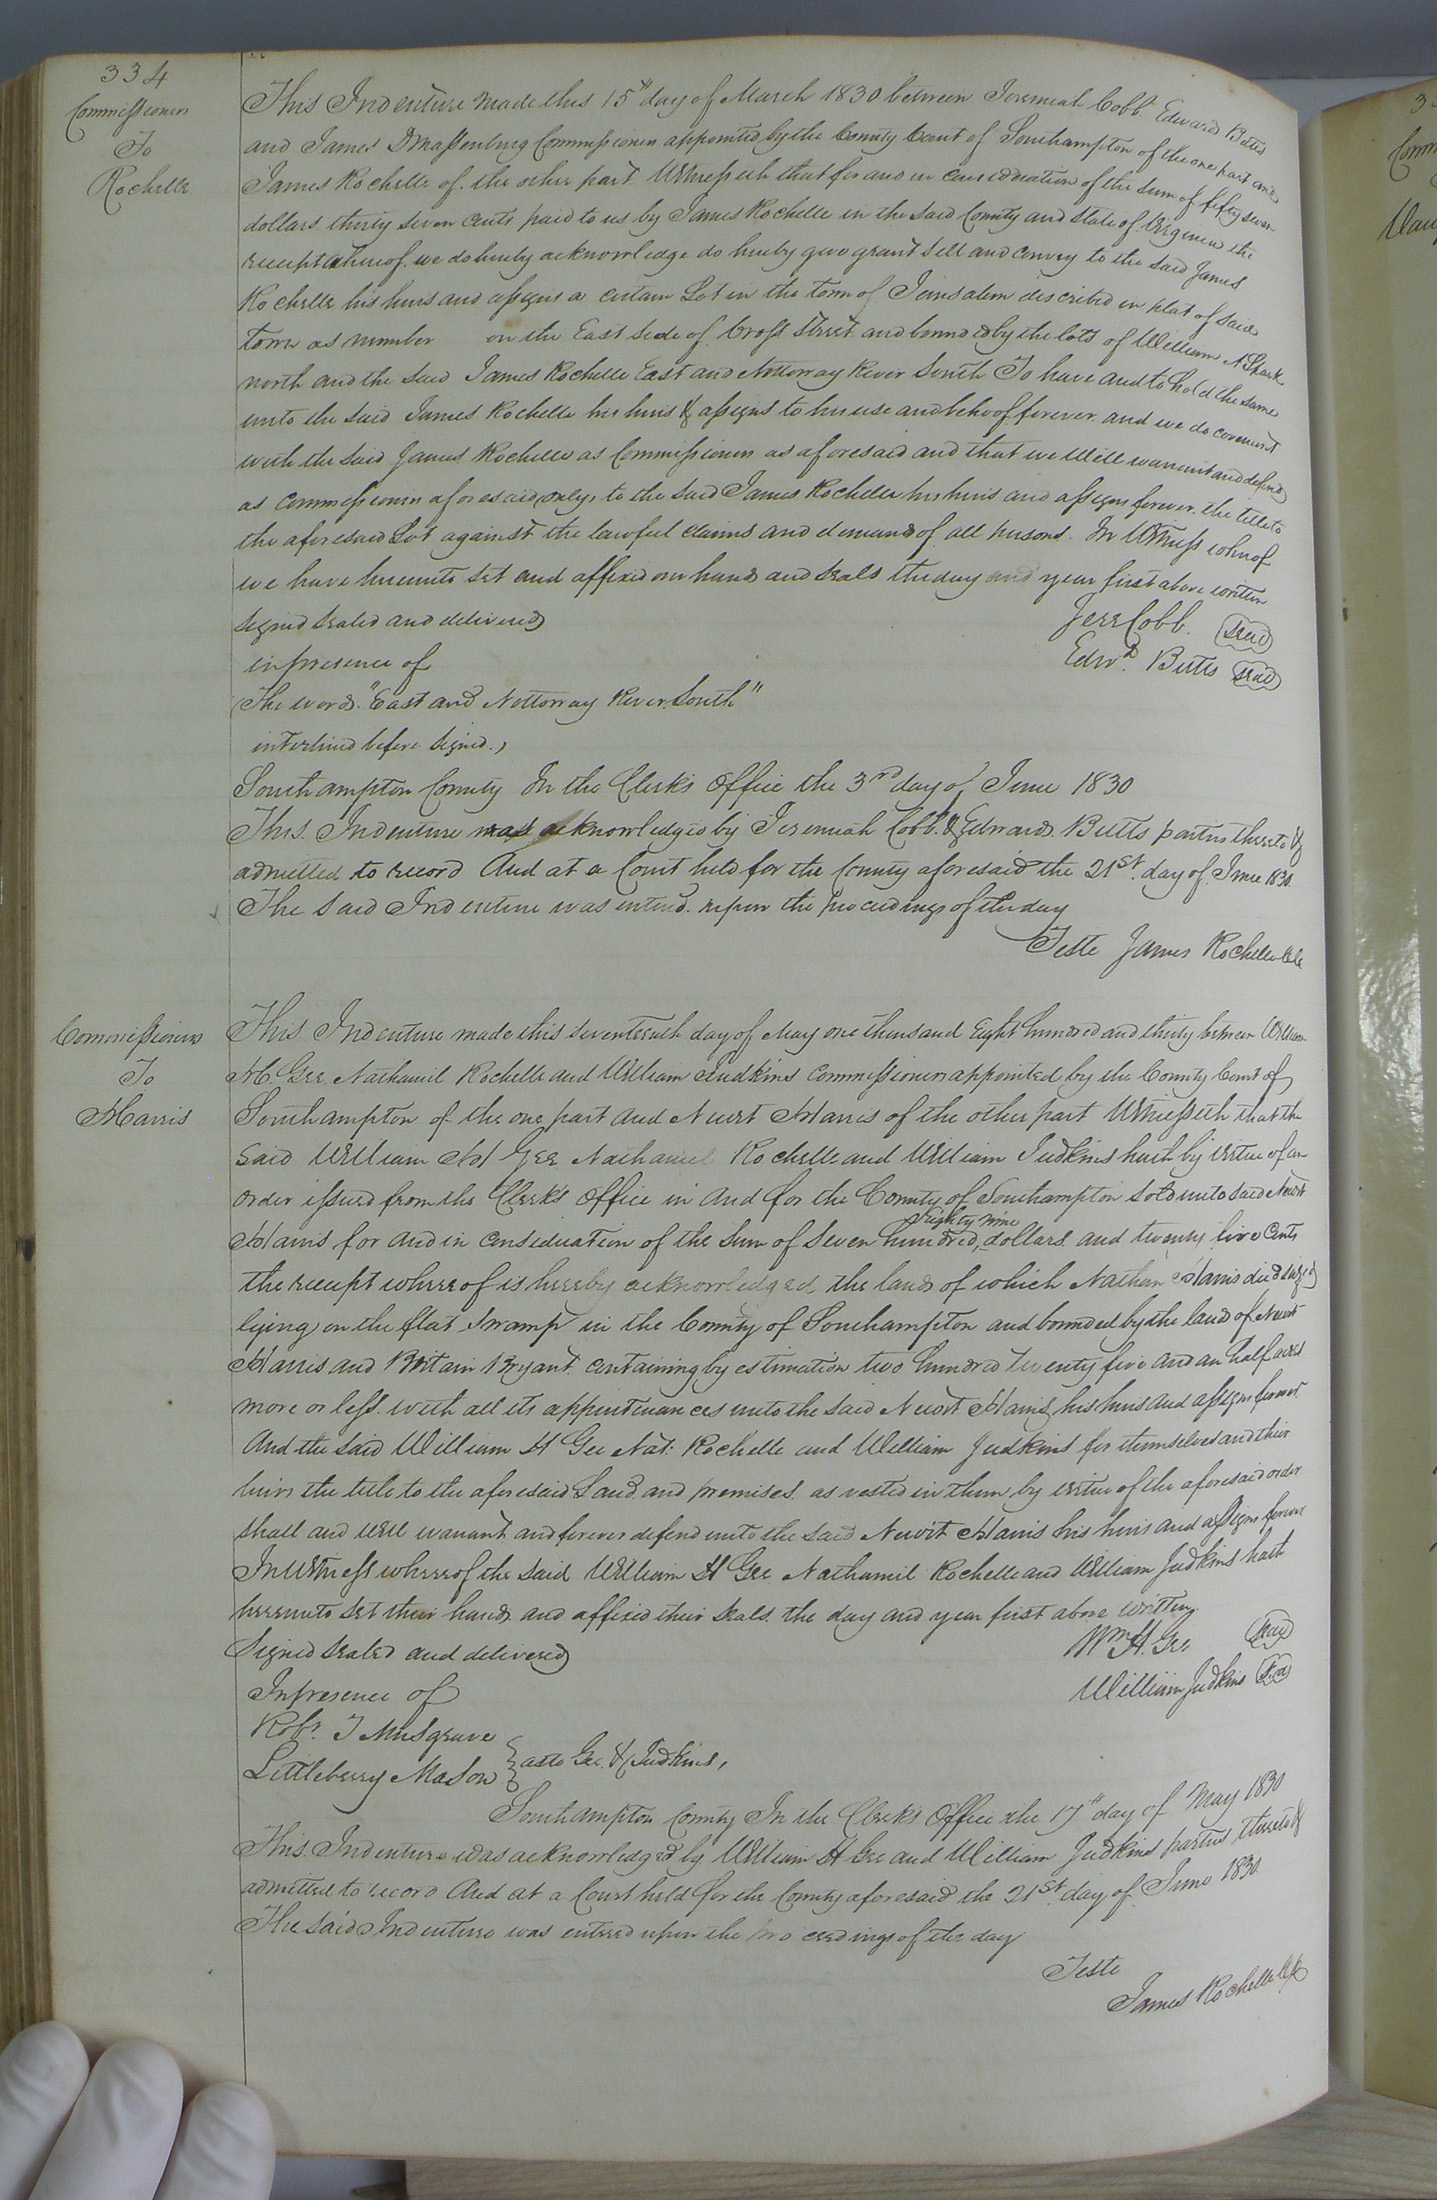 334
Commissioners
To
Rochelle
This Indenture made this 15th day of March 1830 between Jeremiah Cobb Edward Butts
and James D Massenburg Commissioners appointed by the County Court of Southampton of the one part and
James Rochelle of the other part Witnesseth that for and in consideration of the sum of fifty seven
dollars thirty seven cents paid to us by James Rochelle in the said County and State of Virginia the
receipt whereof we do hereby acknowledge do hereby give grant sell and convey to the said James
Rochelle his heirs and assigns a certain Lot in the town of Jerusalem described in plat of said
town as number on the East side of Cross Street and bounded by the lots of William N
north and the said James Rochelle East and Nottoway River South To have and to hold the same
unto the said James Rochelle his heirs & assigns to his use and behoof forever and we do covenant
with the said James Rochelle as Commissioners as aforesaid and that we will warrant and defend
as commissioners aforesaid, only, to the said James Rochelle his heirs and assigns forever the title to
the aforesaid Lot against the lawful claims and demands of all persons. In Witness whereof
we have hereunto set and affixed our hands and seals the day and year first above written
signed sealed and delivered Jere Cobb. seal
in presence of Edwd. Butts seal
(The words "East and Nottoway River South"
interlined before signed.)
Southampton County In the Clerk's Office the 3rd day of June 1830
This Indenture was acknowledged by Jeremiah Cobb & Edward Butts parties thereto &
admitted to record And at a Court held for the County aforesaid the 21st day of June 1830.
The said Indenture was enterd. upon the proceedings of the day
Teste James Rochelle Clk
Commissioners
To
Harris
This Indenture made this seventeenth day of May one thousand Eight hundred and thirty between William
H. Gee Nathaniel Rochelle and William Judkins Commissioners appointed by the County Court of
Southampton of the one part and Newit Harris of the other part Witnesseth that the
said William H Gee Nathaniel Rochelle and William Judkins hath by virtue of an
order issued from the Clerk's Office in and for the County of Southampton sold unto said Newit
Eighty nine
Harris for and in consideration of the sum of seven hundred, dollars and twenty five Cents
the receipt whereof is hereby acknowledged, the land of which Nathan Harris died seized
lying on the flat swamp in the County of Southampton and bounded by the land of Newit
Harris and Britain Bryant containing by estimation two hundred twenty five and an half acres
more or less with all its appurtenances unto the said Newit Harris his heirs and assigns forever
And the said William H Gee Nat: Rochelle and William Judkins for themselves and their
heirs the title to the aforesaid Land and premises as vested in them by virtue of the aforesaid order
shall and will warrant and forever defend unto the said Newit Harris his heirs and assigns forever
In Witness whereof the said William H Gee Nathaniel Rochelle and William Judkins hath
hereunto set their hands and affixed their seals the day and year first above written
Signed sealed and delivered Wm H. Gee seal
In presence of William Judkins seal
Robt. T Musgrave
Littleberry Mason } as to Gee & Judkins,
Southampton County In the Clerk's Office the 17th day of May 1830
This Indenture was acknowledged by William H Gee and William Judkins parties thereto &
admitted to record And at a Court held for the County aforesaid the 21st day of June 1830.
The said Indenture was entered upon the proceedings of the day
Teste
James Rochelle Clk